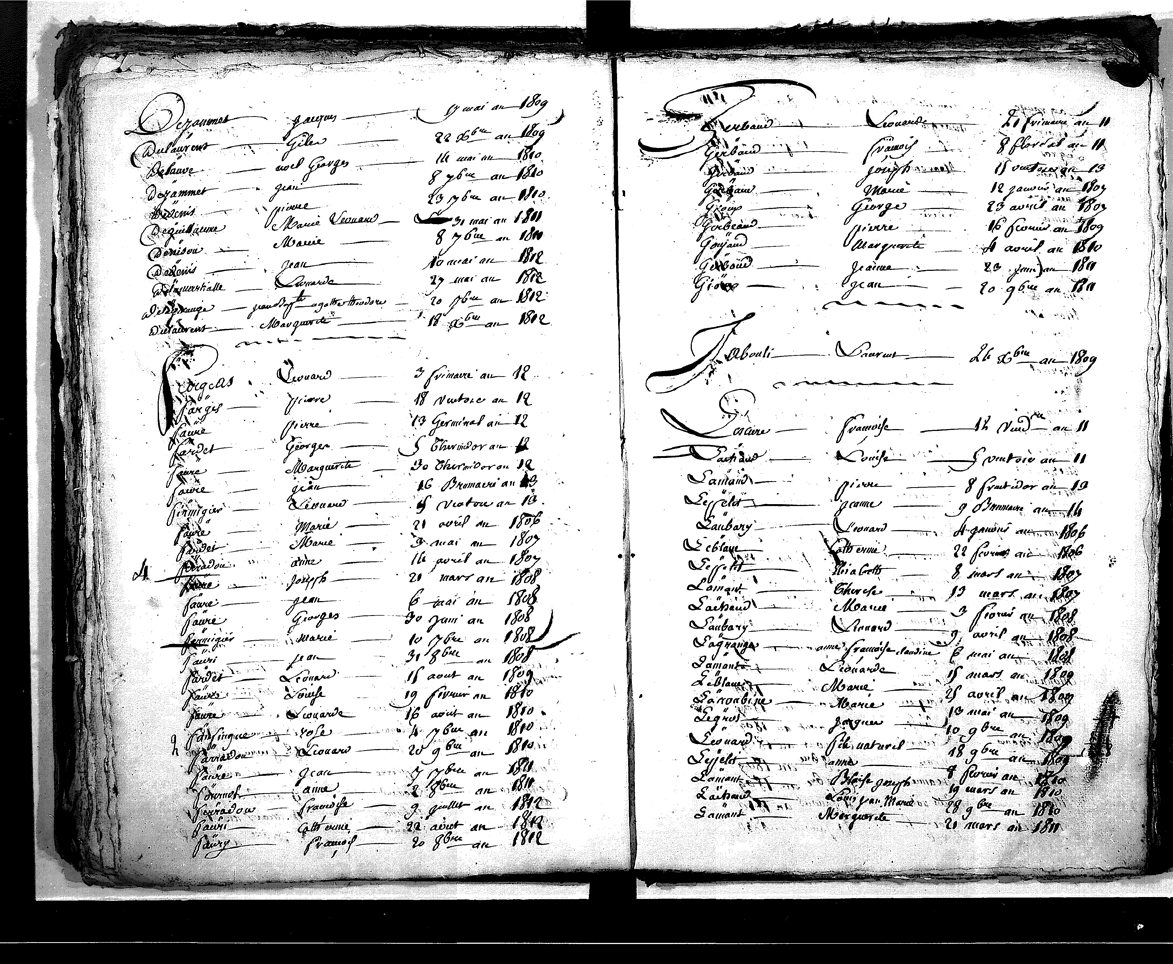 Dezammet Jacques 17 mai an 1809
Delaurent Gilen 22 Xbre an 1809
Delauve noel Georges 14 mai an 1810
Dezammet jean 8 7bre an 1810
Dedenis pierre 23 7bre an 1810
Deguillaume Marie Léonard 31 mai an 1811
Denison Marie 8 7bre an 1811
Dedenis jean 10 mai an 1812
Delamartielle Léonarde 27 mai an 1812
Delagrange jean Bte agatte theodore 20 7bre an 1812
Delaurent Marguerite 18 Xbre an 1812
Forgeas Léonard 3 frimaire an 12
farges pierre 18 ventose an 12
faure pierre 13 Germinal an 12
fardet Georges 5 thermidor an 12
faure Marguerite 30 thermidor an 12
faure jean 16 Brumaire an 13
finnigier Léonard 15 ventose an 13
faure Marie 21 avril an 1806
fardet Marie 3 mai an 1807
feradou anne 14 avril an 1807
4 faure joseph 21 mars an 1808
faure jean 6 mai an 1808
faure Georges 30 juni an 1808
fennigier Marie 10 7bre an 1808
fauri jean 31 8bre 1808
fardet Léonard 15 aout an 1809
faure Louise 19 fevrier an 1810
faure Léonarde 16 août an 1810
rose 4 7bre an 1810
2 farradou Léonard 20 9bre an 1810
faure Jean 7 7bre an 1811
fournet anne 2 8bre an 1811
feuradou francoise 9 juillet an 1812
fauri Catherine 22 aout an 1812
faury francois 20 8bre an 1812
Gerbaud Léonarde 21 frimaire an 11
Gerbaud francois 8 floreal an 11
joseph 15 ventose an 13
Gerbaud Marie 12 janvier an 1807
George 23 avril an 1807
Gerbeaud pierre 16 fevrier an 1809
Goujaud Marguerite 4 avril an 1810
Gerbaud jeanne 23 juni an 1811
Jean 20 9bre an 1811
Jabouli Laurent 26 Xbre an 1809
Lascure francoise 14 vendre an 11
Lachaud Louise 5 ventose an 11
Lamant pierre 8 fructidor an 13
Leffelet jeanne 9 Brumaire an 14
Laubary Léonard 4 janvier an 1806
Leblanc Catherine 22 fevrier an 1806
Leffelet Elisabeth 8 mars an 1807
Lamant Therese 13 mars an 1807
Lachaud Marie 3 fevrier an 1808
Laubary Léonard 9 avril an 1808
Lagrange anne francoise claudine 6 mai an 1808
Lamant Léonarde 15 mars an 1809
Leblanc Marie 25 avril an 1809
Larroubine Marie 13 mai an 1809
Legros jacques 10 9bre an 1809
Léonard fils naturel 18 9bre an 1809
Leffelet anne 8 fevrier an 1810
Lamant Blaise joseph 19 mars an 1810
Lachaud Louis jean Marie 28 9bre an 1810
Lamant Marguerite 21 mars an 1811